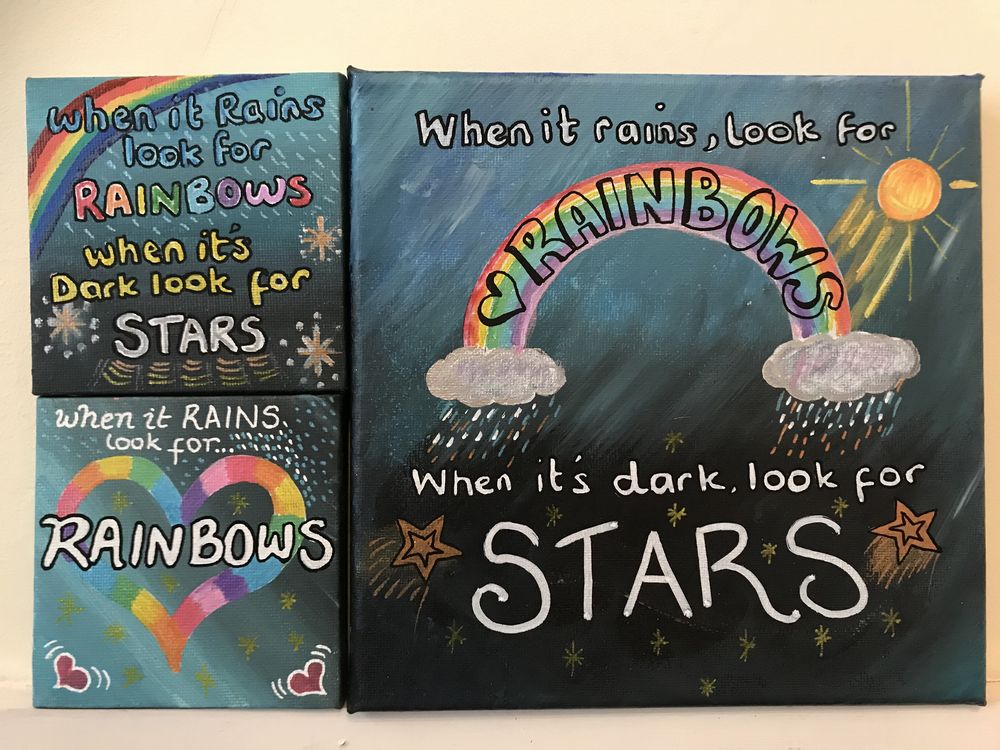 when it Rains
look for
RAINBOWS
when it's
Dark look for
STARS
when it RAINS,
look for...
RAINBOWS
When it rains, look for
RAINBOWS
When it's dark, look for
STARS